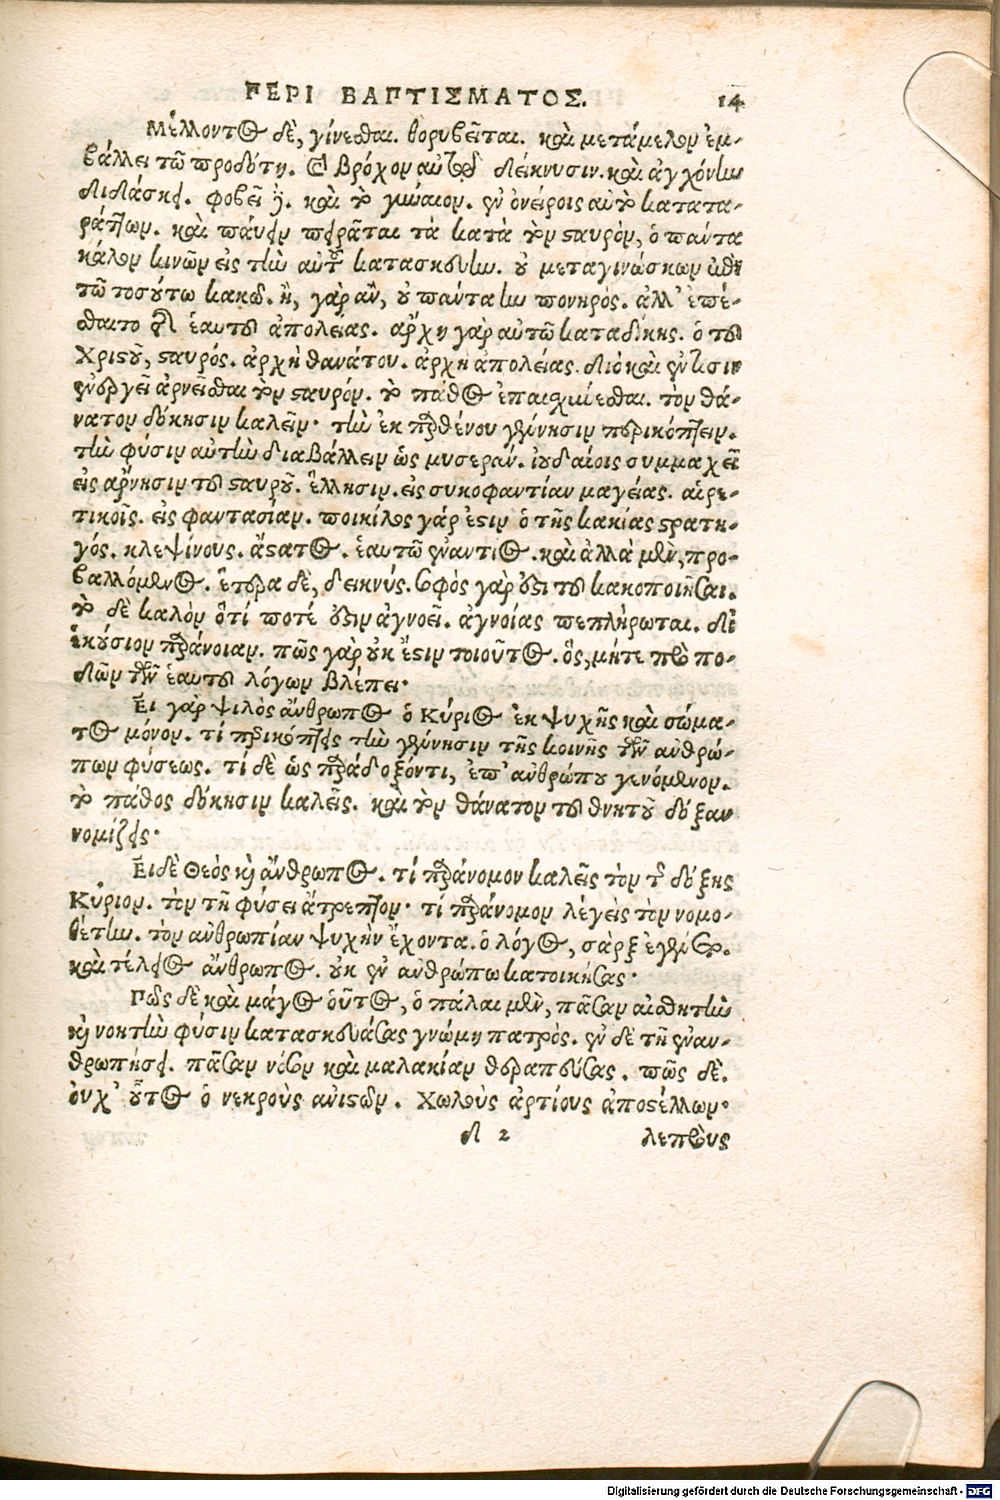 ΠΕΡΙ ΒΑΠΤΙΣΜΑΤΟΣ. 14
Μέλλοντος δὲ, γίνεσθαι. θορυβεῖται. καὶ μετάμελον ἐμ-
βάλλει τῶ προδότῃ. καὶ βρόχον αὐτῷ δείκνυσιν. καὶ ἀγχόνην
διδάσκει. φοβεῖ δὲ. καὶ τὸ γύναιον. ἐν ὀνείροις αὐτὸ καταταράττων.
ράττων. καὶ παύειν πειρᾶται τὰ κατὰ τὸν σταυρὸν, ὁ πάντα
κάλον κινῶν εἰς τὴν αὐτοῦ κατασκευὴν. οὐ μεταγινώσκων ἐπὶ
τῶ τοσούτω κακῶ. ἢ, γὰρ ἂν, οὐ πάντα ἦν πονηρός. ἀλλ' ἐπέ-
σθαιτο τῆς ἑαυτοῦ ἀπολείας. ἀρχὴ γὰρ αὐτῶ καταδίκης. ὁ τοῦ
Χριστοῦ, σταυρός. ἀρχὴ θανάτου. ἀρχὴ ἀπολείας. διὸ καὶ ἔν τισιν
ἐνεργεῖ ἀρνεῖσθαι τὸν σταυρόν. τὸ πάθος ἐπαισχύνεσθαι. τὸν θά-
νατον δόκησιν καλεῖν· τὴν ἐκ παρθένου γέννησιν περικόπτειν.
τὴν φύσιν αὐτὴν διαβάλλειν ὡς μυσεράν. ἰουδαίοις συμμαχεῖ
εἰς ἄρνησιν τοῦ σταυροῦ. ἕλλησιν. εἰς συκοφαντίαν μαγείας. αἱρε-
τικοῖς. εἰς φαντασίαν. ποικίλος γάρ ἐστιν ὁ τῆς κακίας στρατη-
γός. κλεψίνους. ἄστατος. ἑαυτῶ ἐναντίος. καὶ ἀλλὰ μὲν, προ-
βαλλόμενος. ἕτερα δὲ, δεικνύς. σοφὸς γὰρ ἐστι τοῦ κακοποιῆσαι.
τὸ δὲ καλὸν ὅτί ποτέ ἐστιν ἀγνοεῖ. ἀγνοίας πεπλήρωται. δι'
ἑκούσιον παράνοιαν. πῶς γὰρ οὐκ ἔστιν τοιοῦτος. ὃς, μήτε πρὸ πο-
δῶν τῶν ἑαυτοῦ λόγων βλέπει·
Εἰ γὰρ ψιλὸς ἄνθρωπος ὁ Κύριος ἐκ ψυχῆς καὶ σώμα-
τος μόνον. τί περικόπτεις τὴν γέννησιν τῆς κοινῆς τῶν ἀνθρώ-
πων φύσεως. τί δὲ ὡς παράδοξόντι, ἐπ' ἀνθρώπου γενόμενον.
τὸ πάθος δόκησιν καλεῖς. καὶ τὸν θάνατον τοῦ θνητοῦ δόξαν
νομίζεις·
Εἰ δὲ Θεὸς καὶ ἄνθρωπος. τί παράνομον καλεῖς τὸν τῆς δόξης
Κύριον. τὸν τῇ φύσει ἄτρεπτον· τί παράνομον λέγεις τὸν νομο-
θέτην. τὸν ἀνθρωπίαν ψυχὴν ἔχοντα. ὁ λόγος, σὰρξ ἐγένετο.
καὶ τέλειος ἄνθρωπος. οὐκ ἐν ἀνθρώπω κατοικήσας·
Πῶς δὲ καὶ μάγος οὗτος, ὁ πάλαι μὲν, πᾶσαν αἰσθητὴν
καὶ νοητὴν φύσιν κατασκευάσας γνώμῃ πατρός. ἐν δὲ τῇ ἐναν-
θρωπήσει. πᾶσαν νόσον καὶ μαλακίαν θεραπεύσας. πῶς δὲ.
οὐχ' οὗτος ὁ νεκροὺς ἀνιστῶν. Χωλοὺς ἀρτίους ἀποστέλλων·
d 2 λεπροὺς
Digitalisierung gefördert durch die Deutsche Forschungsgemeinschaft - DFG